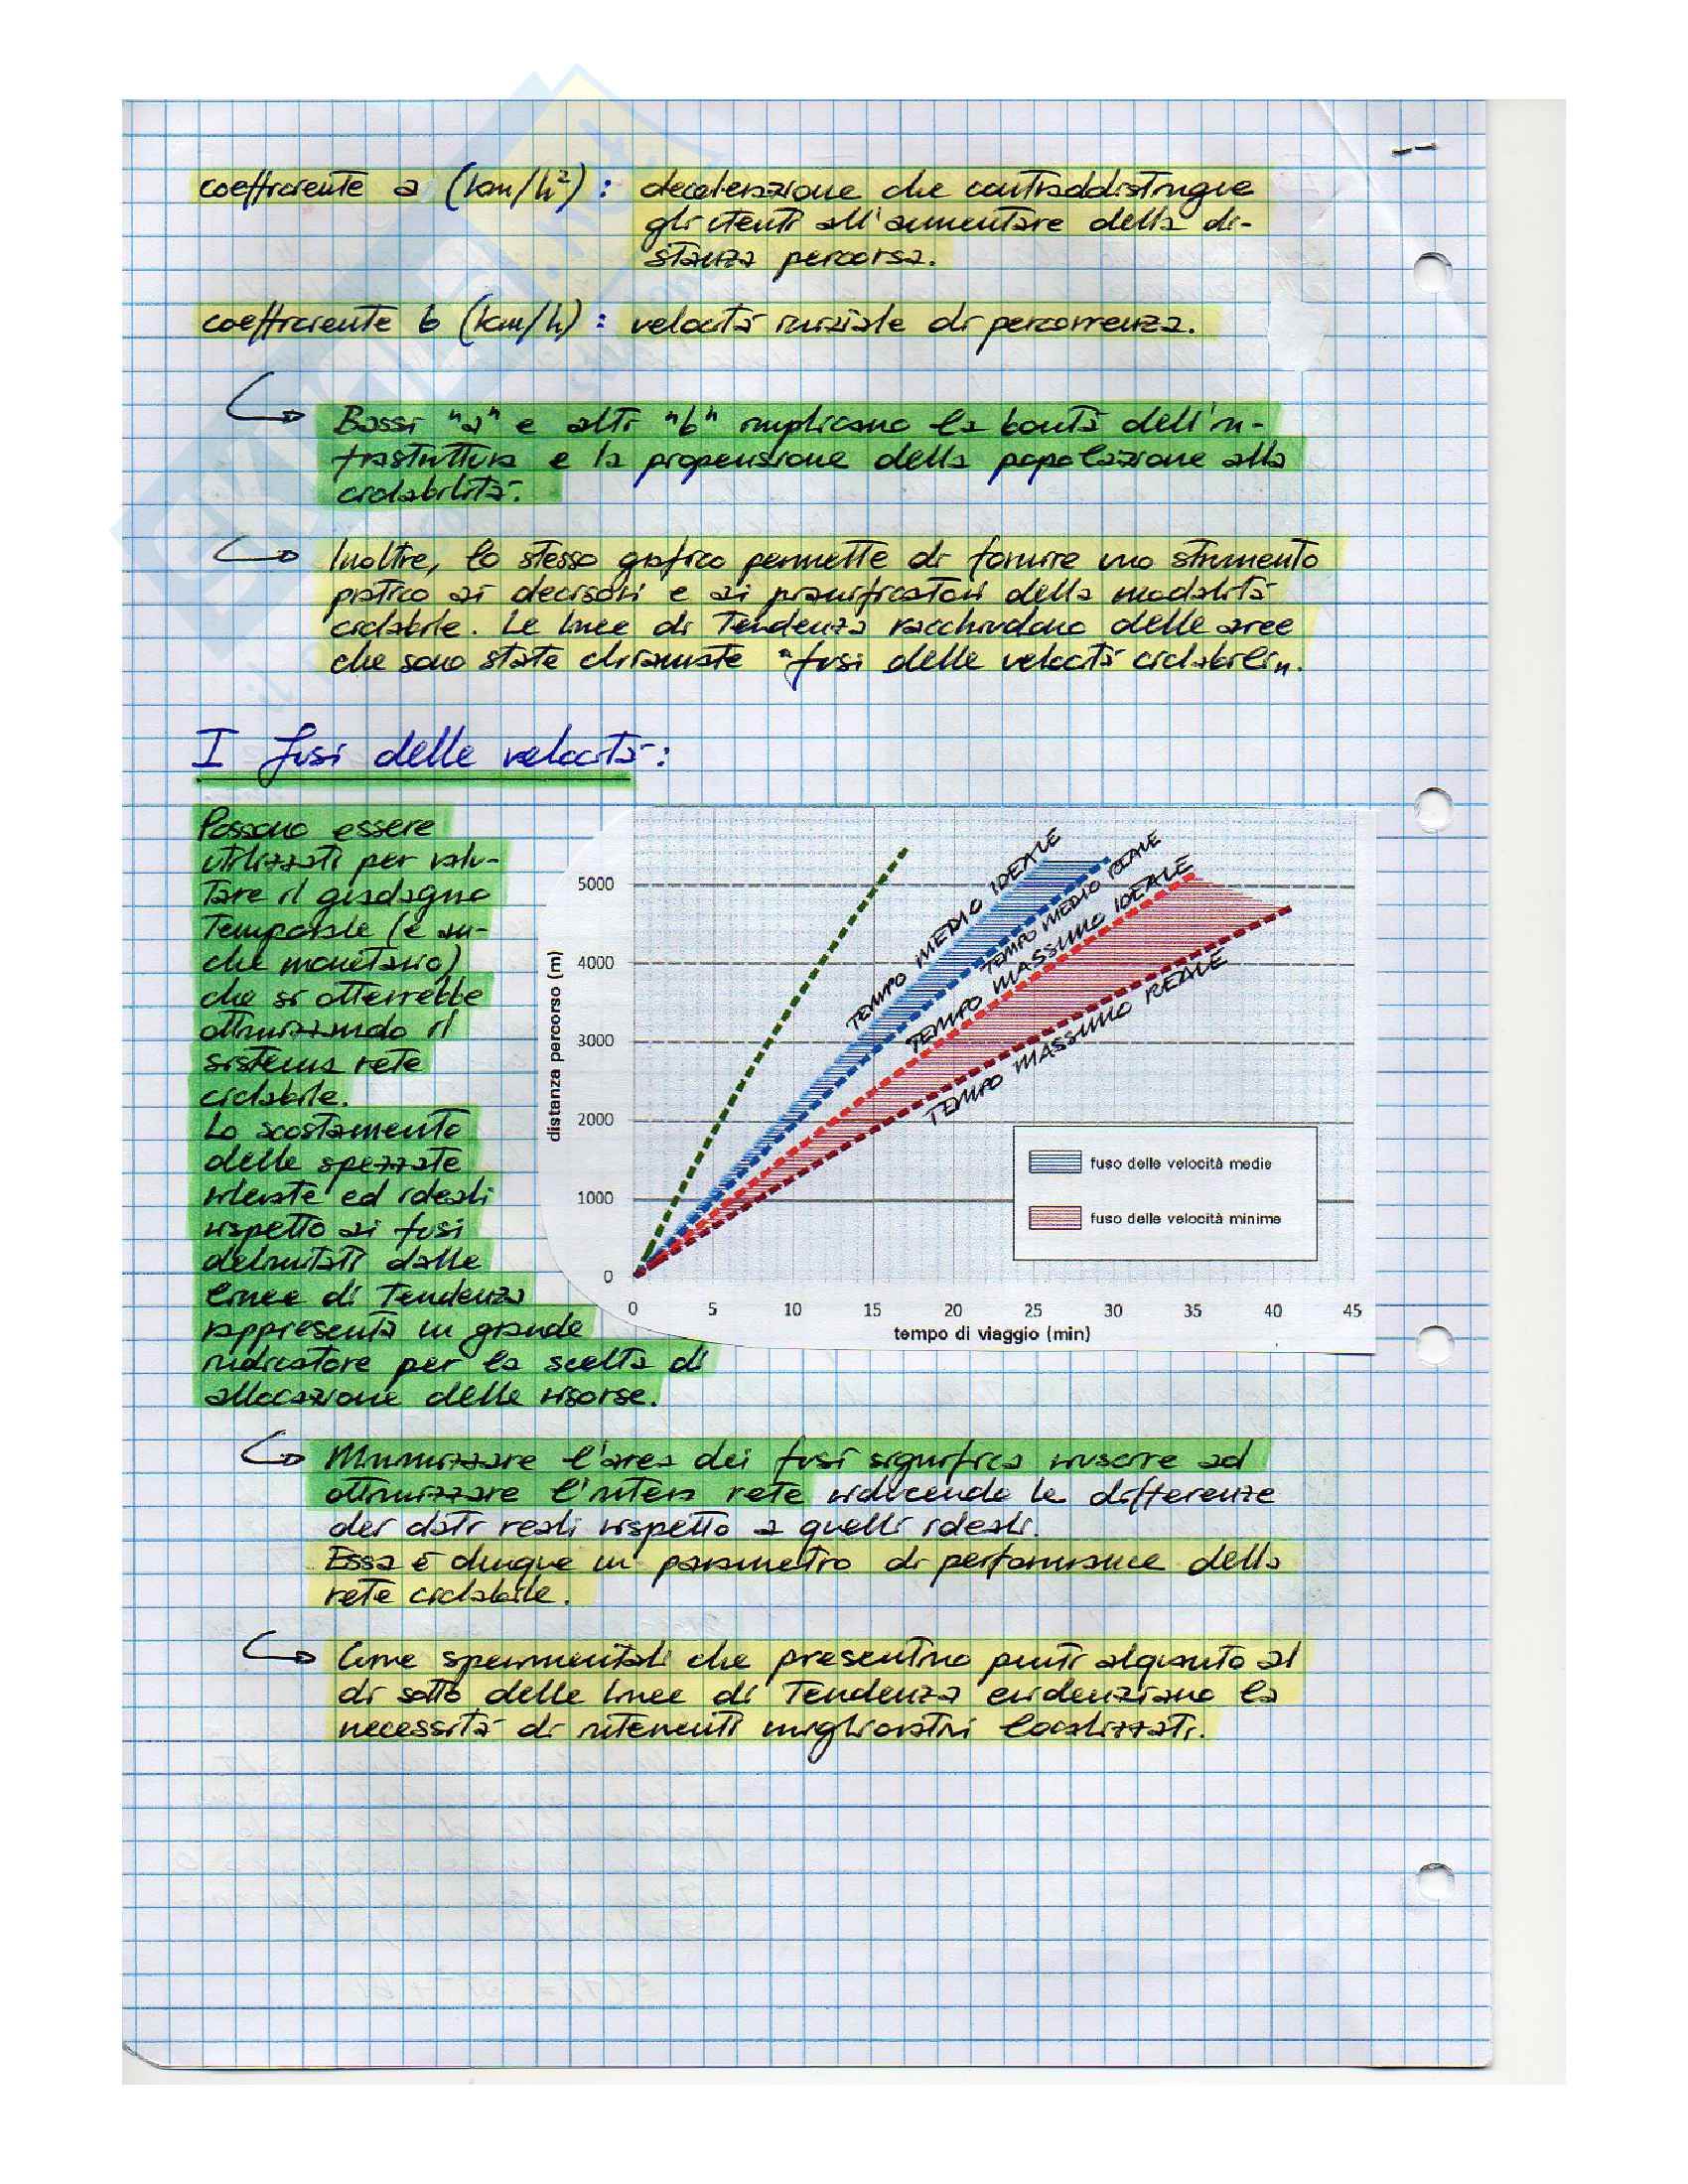 coefficiente a (km/h²) : decelerazione che contraddistingue
gli utenti all'aumentare della di-
stanza percorsa.
coefficiente b (km/h) : velocità iniziale di percorrenza.
Bassi "a" e alti "b" implicano la bontà dell'in-
frastruttura e la propensione della popolazione alla
ciclabilità.
Inoltre, lo stesso grafico permette di fornire uno strumento
pratico ai decisori e ai pianificatori della modalità
ciclabile. Le linee di tendenza racchiudono delle aree
che sono state chiamate "fusi delle velocità ciclabili".
I fusi delle velocità:
Possono essere
utilizzati per valu-
tare il guadagno
temporale (e an-
che monetario)
che si otterrebbe
ottimizzando il
sistema rete
ciclabile.
Lo scostamento
delle spezzate
rilevate ed ideali
rispetto ai fusi
delimitati dalle
linee di tendenza
rappresenta un grande
indicatore per la scelta di
allocazione delle risorse.
distanza percorso (m)
5000
4000
3000
2000
1000
0
TEMPO MEDIO IDEALE
TEMPO MEDIO REALE
TEMPO MASSIMO IDEALE
TEMPO MASSIMO REALE
fuso delle velocità medie
fuso delle velocità minime
0 5 10 15 20 25 30 35 40 45
tempo di viaggio (min)
Minimizzare l'area dei fusi significa riuscire ad
ottimizzare l'intera rete riducendo le differenze
dei dati reali rispetto a quelli ideali.
Essa è dunque un parametro di performance della
rete ciclabile.
Curve sperimentali che presentino punti alquanto al
di sotto delle linee di tendenza evidenziano la
necessità di interventi migliorativi localizzati.